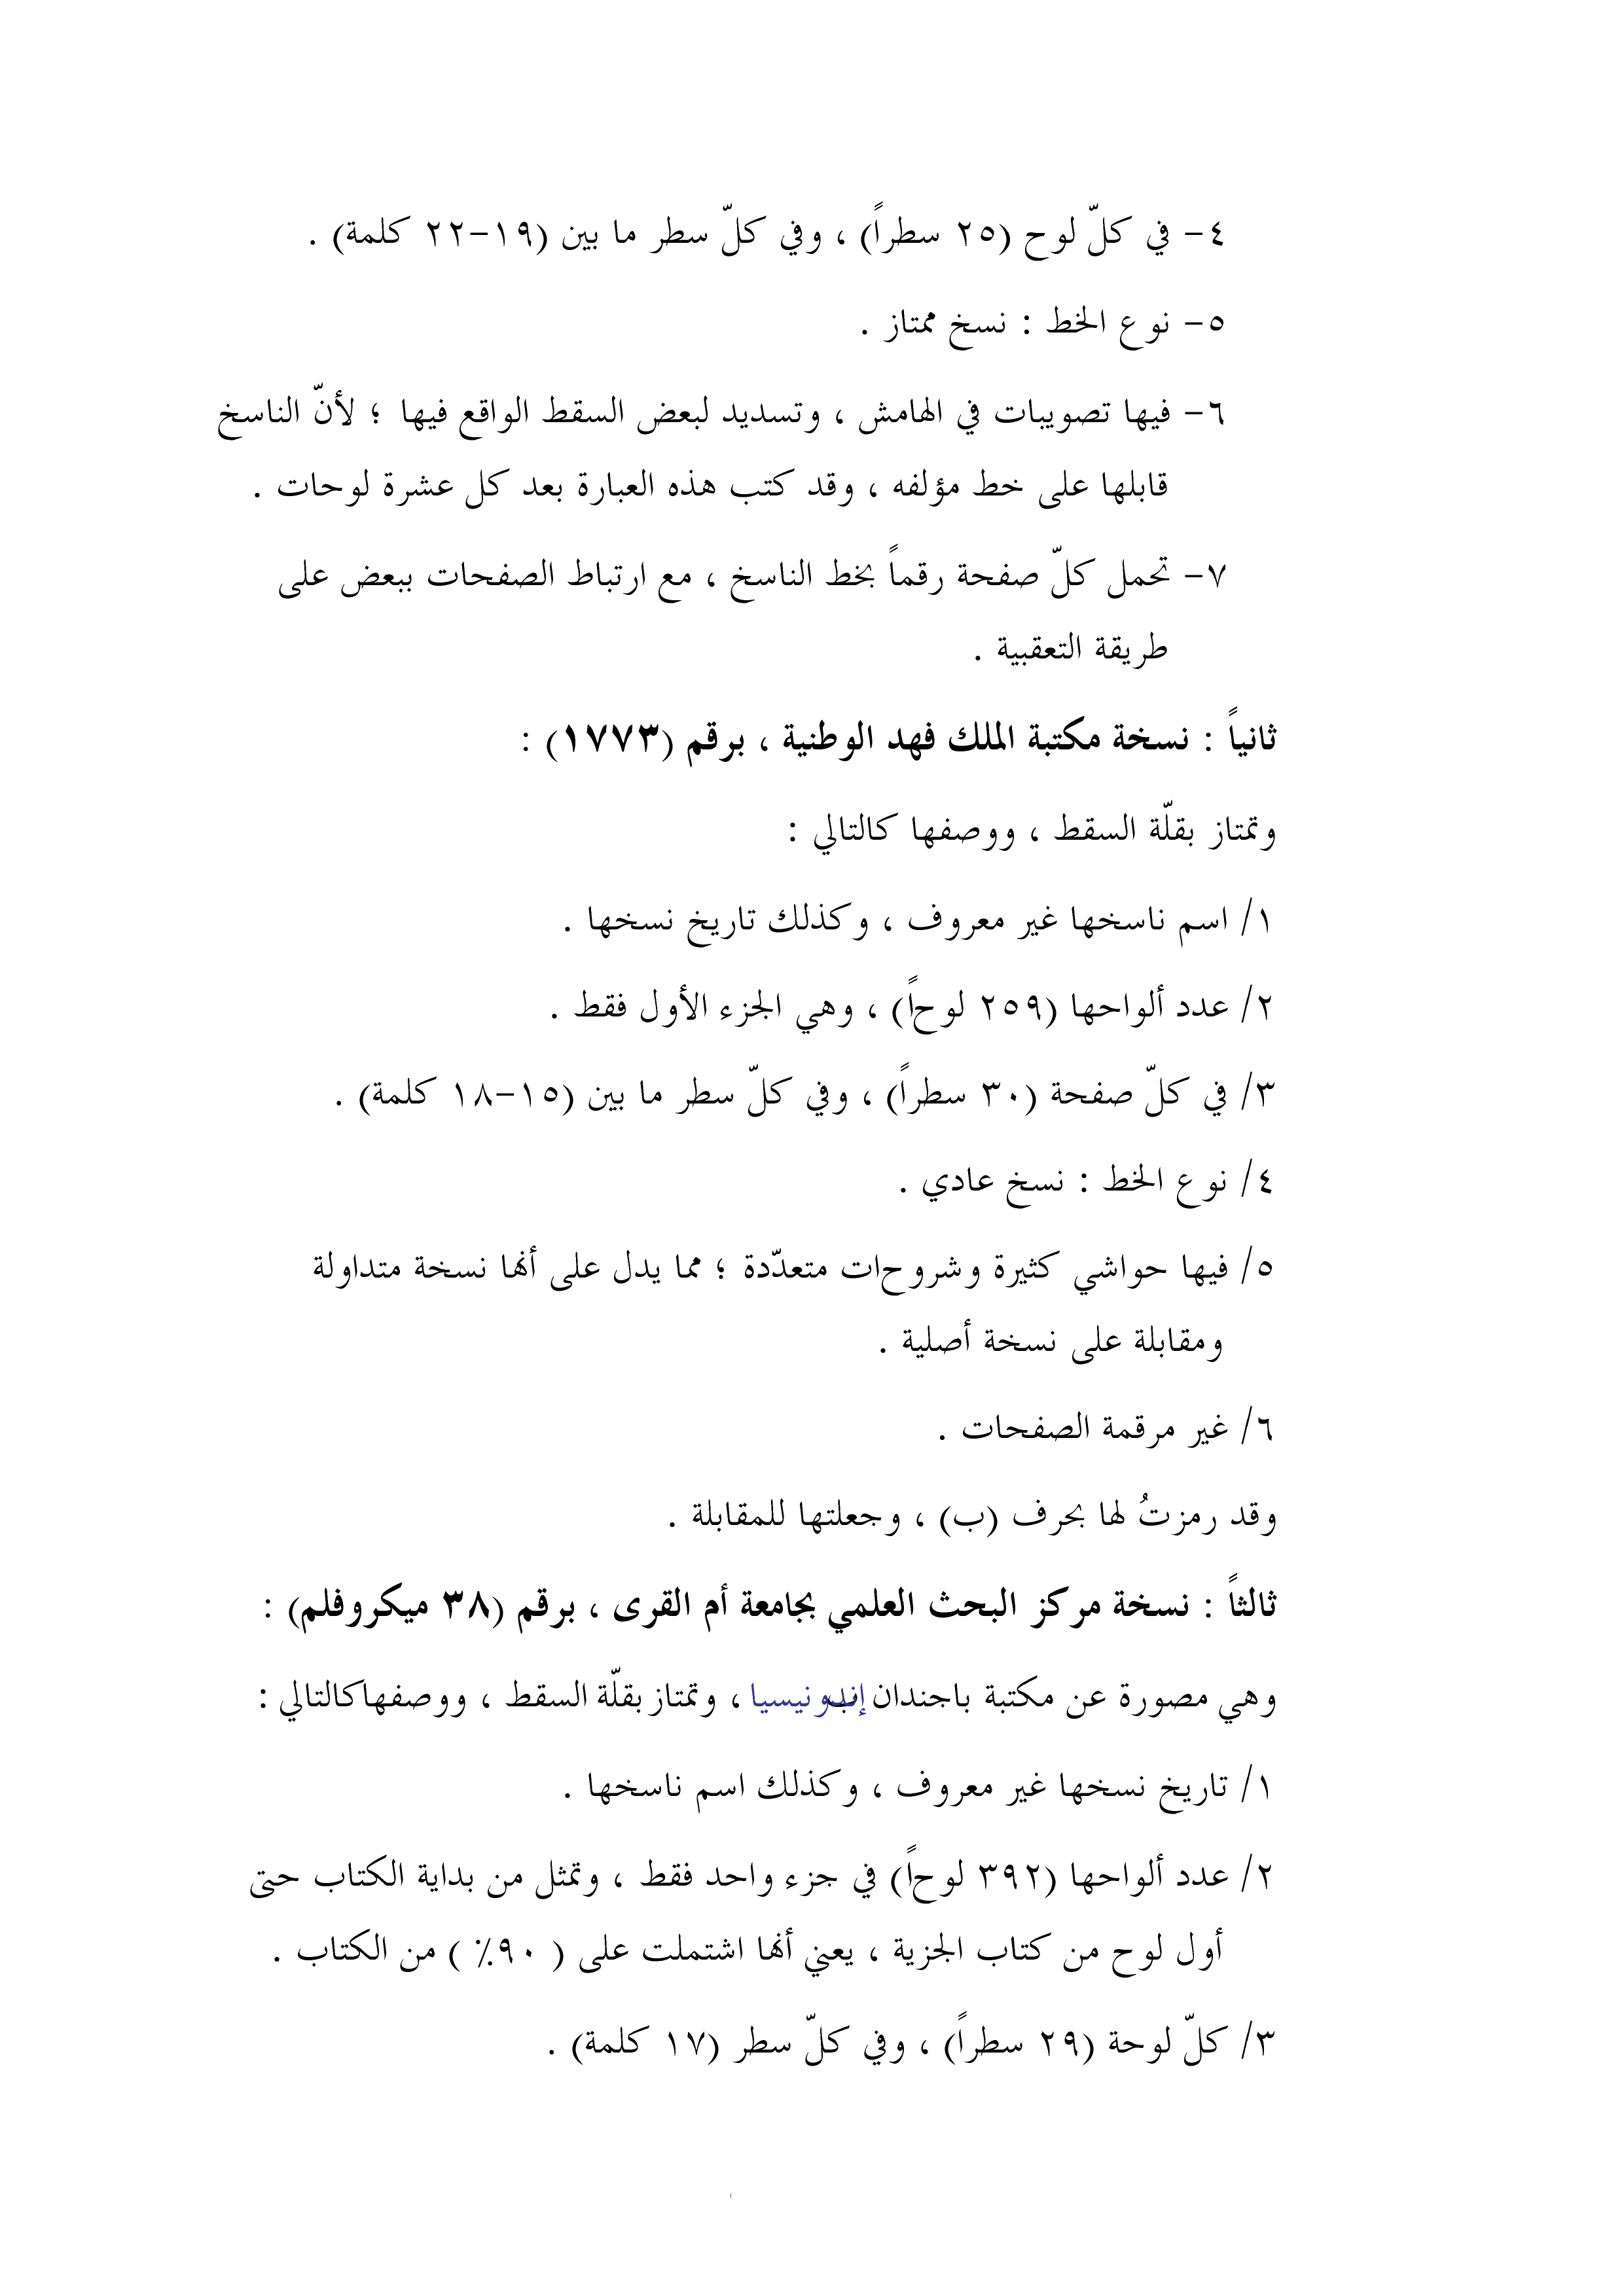 ٤- في كلّ لوح (٢٥ سطراً) ، وفي كلّ سطر ما بين (١٩-٢٢ كلمة) .
٥- نوع الخط : نسخ ممتاز .
٦- فيها تصويبات في الهامش ، وتسديد لبعض السقط الواقع فيها ؛ لأنّ الناسخ
قابلها على خط مؤلفه ، وقد كتب هذه العبارة بعد كل عشرة لوحات .
٧- تحمل كلّ صفحة رقماً بخط الناسخ ، مع ارتباط الصفحات ببعض على
طريقة التعقبية .
ثانياً : نسخة مكتبة الملك فهد الوطنية ، برقم (١٧٧٣) :
وتمتاز بقلّة السقط ، ووصفها كالتالي :
١/ اسم ناسخها غير معروف ، وكذلك تاريخ نسخها .
٢/ عدد ألواحها (٢٥٩ لوحاً) ، وهي الجزء الأول فقط .
٣/ في كلّ صفحة (٣٠ سطراً) ، وفي كلّ سطر ما بين (١٥-١٨ كلمة) .
٤/ نوع الخط : نسخ عادي .
٥/ فيها حواشي كثيرة وشروحات متعدّدة ؛ مما يدل على أنها نسخة متداولة
ومقابلة على نسخة أصلية .
٦/ غير مرقمة الصفحات .
وقد رمزتُ لها بحرف (ب) ، وجعلتها للمقابلة .
ثالثاً : نسخة مركز البحث العلمي بجامعة أم القرى ، برقم (٣٨ ميكروفلم) :
وهي مصورة عن مكتبة باجندان إندونيسيا ، وتمتاز بقلّة السقط ، ووصفها كالتالي :
١/ تاريخ نسخها غير معروف ، وكذلك اسم ناسخها .
٢/ عدد ألواحها (٣٩٢ لوحاً) في جزء واحد فقط ، وتمثل من بداية الكتاب حتى
أول لوح من كتاب الجزية ، يعني أنها اشتملت على ( ٩٠٪ ) من الكتاب .
٣/ كلّ لوحة (٢٩ سطراً) ، وفي كلّ سطر (١٧ كلمة) .